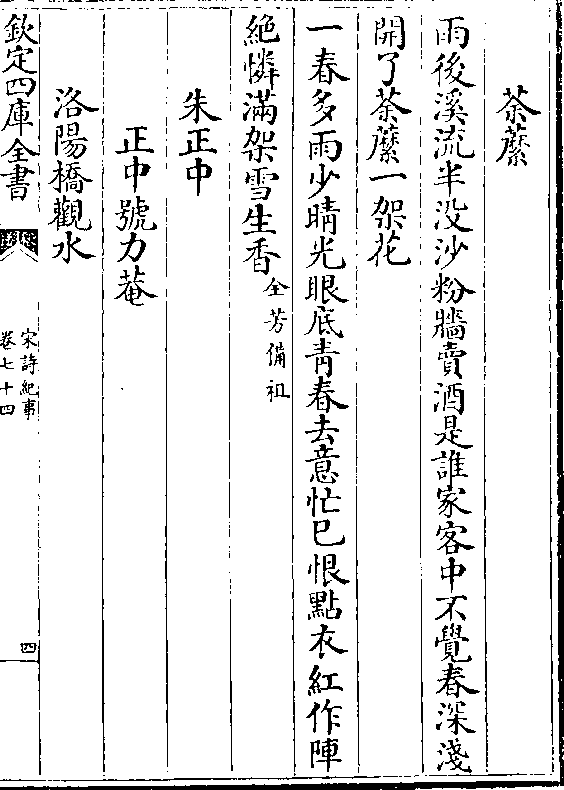 荼䕷
雨後溪流半没沙粉牆賣酒是誰家客中不覺春深淺
開了荼䕷一架花
一春多雨少晴光眼底青春去意忙已恨點衣紅作陣
絶憐滿架雪生香全芳備祖
朱正中
正中號力菴
洛陽橋觀水
欽定四庫全書
宋詩紀事
卷七十四
四